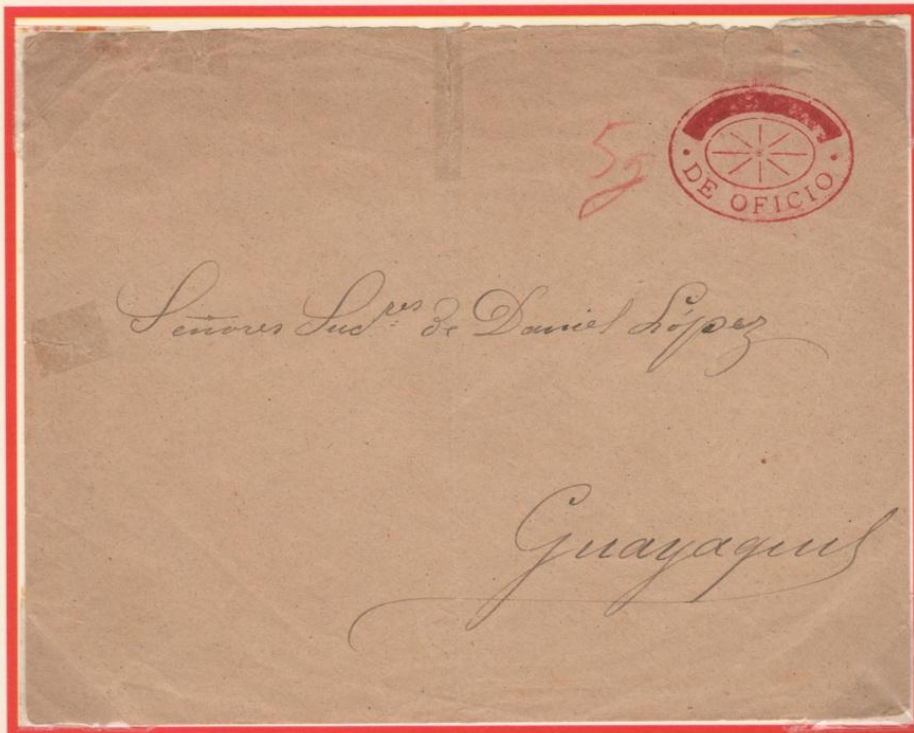 5g
DE OFICIO
Señores Suc.res de Daniel López
Guayaquil